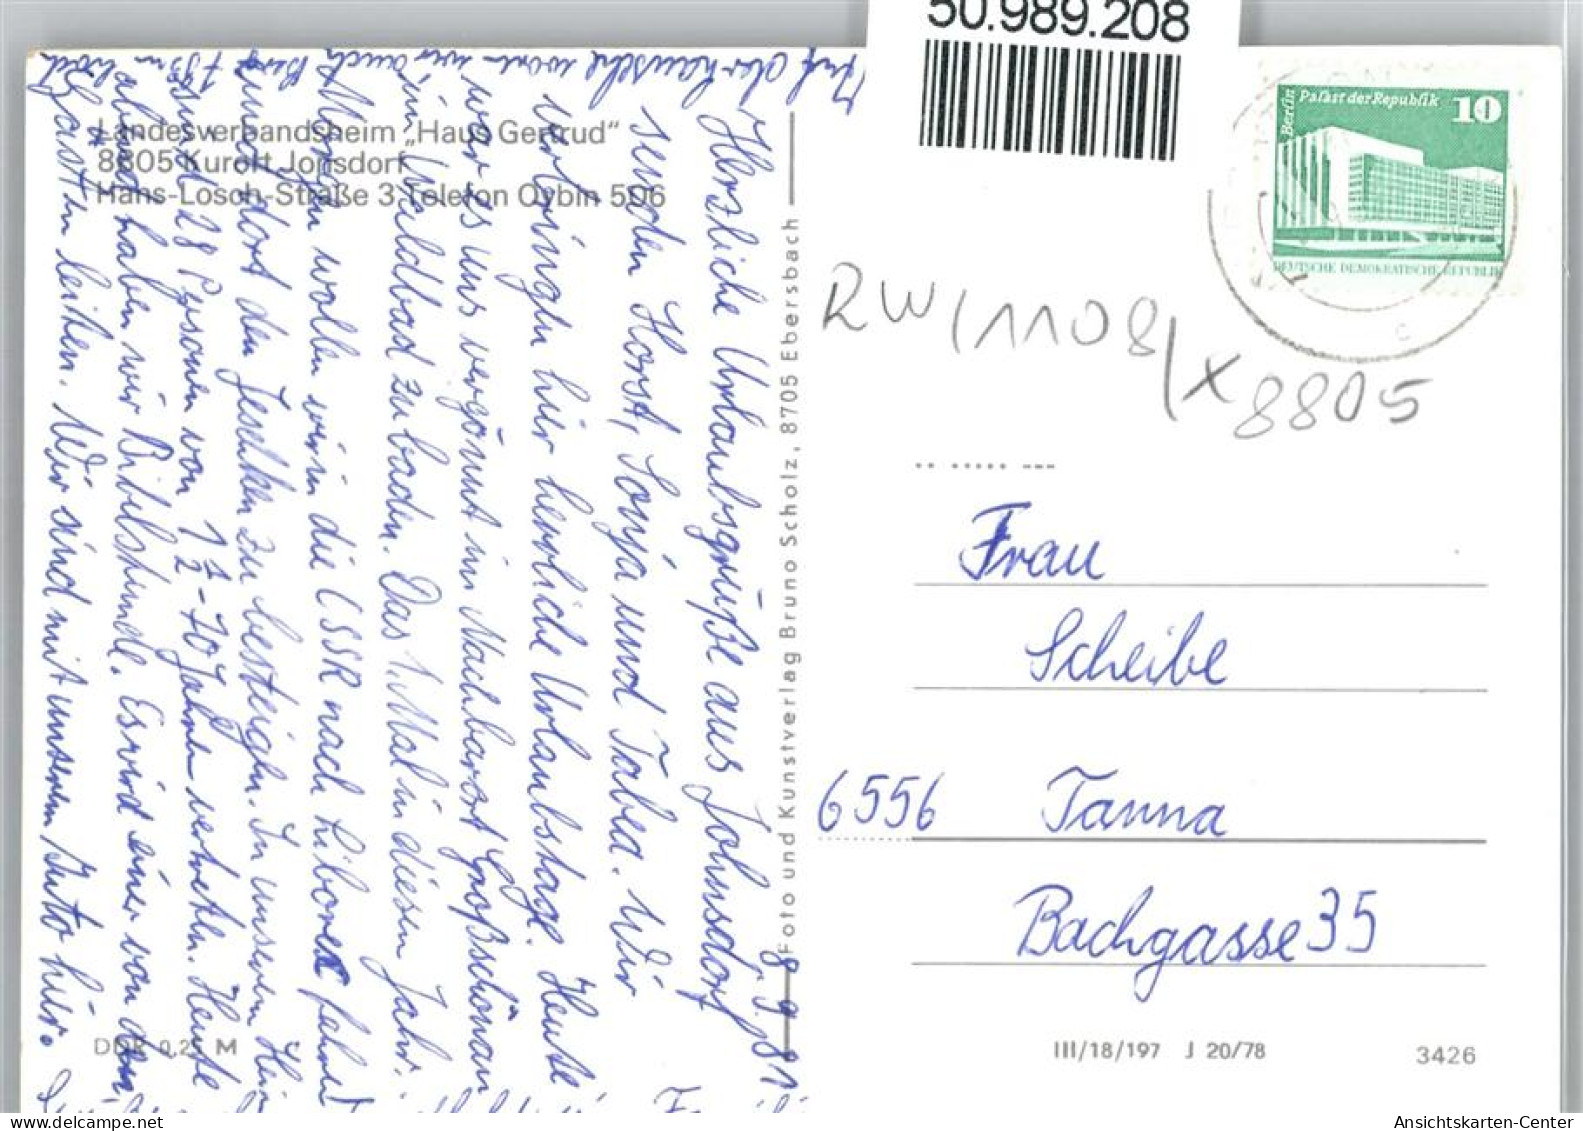 50.989.208
Berlin
Palast der Republik 10
DEUTSCHE DEMOKRATISCHE REPUBLIK
Landesverbandsheim „Haus Gertrud“
8805 Kurort Jonsdorf
Hans-Losch-Straße 3 Telefon Oybin 506
DDR 0,25 M
8.9.81.
Herzliche Urlaubsgrüße aus Johnsdorf
senden Horst, Sonja und Tabea. Wir
verbringen hier herrliche Urlaubstage. Heute
war es uns vergönnt im Nachbarort Großschönau
im Waldbad zu baden. Das 1. Mal in diesem Jahr.
Morgen wollen wir in die CSSR nach Liborec fahren
und dort den Jeschken zu besteigen. In unserem Heim
sind 28 Personen von 1½-70 Jahren vertreten. Heute
abend haben wir Bibelstunde. Es wird einer von den
Gästen leiten. Wir sind mit unserem Auto hier.
Foto und Kunstverlag Bruno Scholz, 8705 Ebersbach
RW/1108/X8805
Frau
Scheibe
6556 Tanna
Bachgasse 35
III/18/197 J 20/78
3426
Ansichtskarten-Center